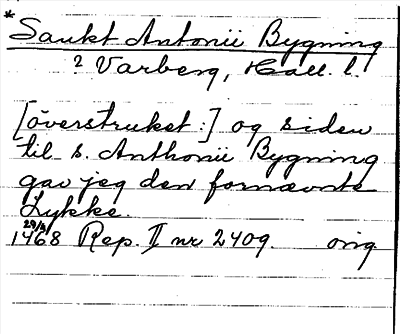 * Sankt Antonii Bygning
? Varberg, Hall. l.
[överstruket:] og siden
til s. Anthonii Bygning
gav jeg den fornævnte
Lykke.
29/3
1468 Rep. II nr 2409. orig